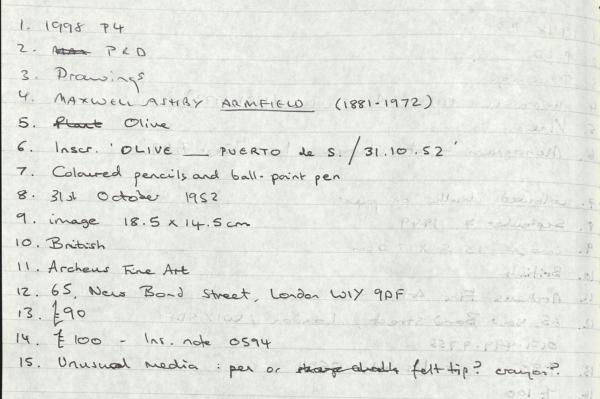 1. 1998 P4
2. P&D
3. Drawings
4. MAXWELL ASHBY ARMFIELD (1881-1972)
5. Plant Olive
6. Inscr. 'OLIVE __ PUERTO de S./31.10.52'
7. Coloured pencils and ball-point pen
8. 31st October 1952
9. image 18.5 x 14.5 cm
10. British
11. Archeus Fine Art
12. 65, New Bond Street, London W1Y 9DF
13. £90
14. £100 - Ins. note 0594
15. Unusual media : pen or felt tip? crayon?.